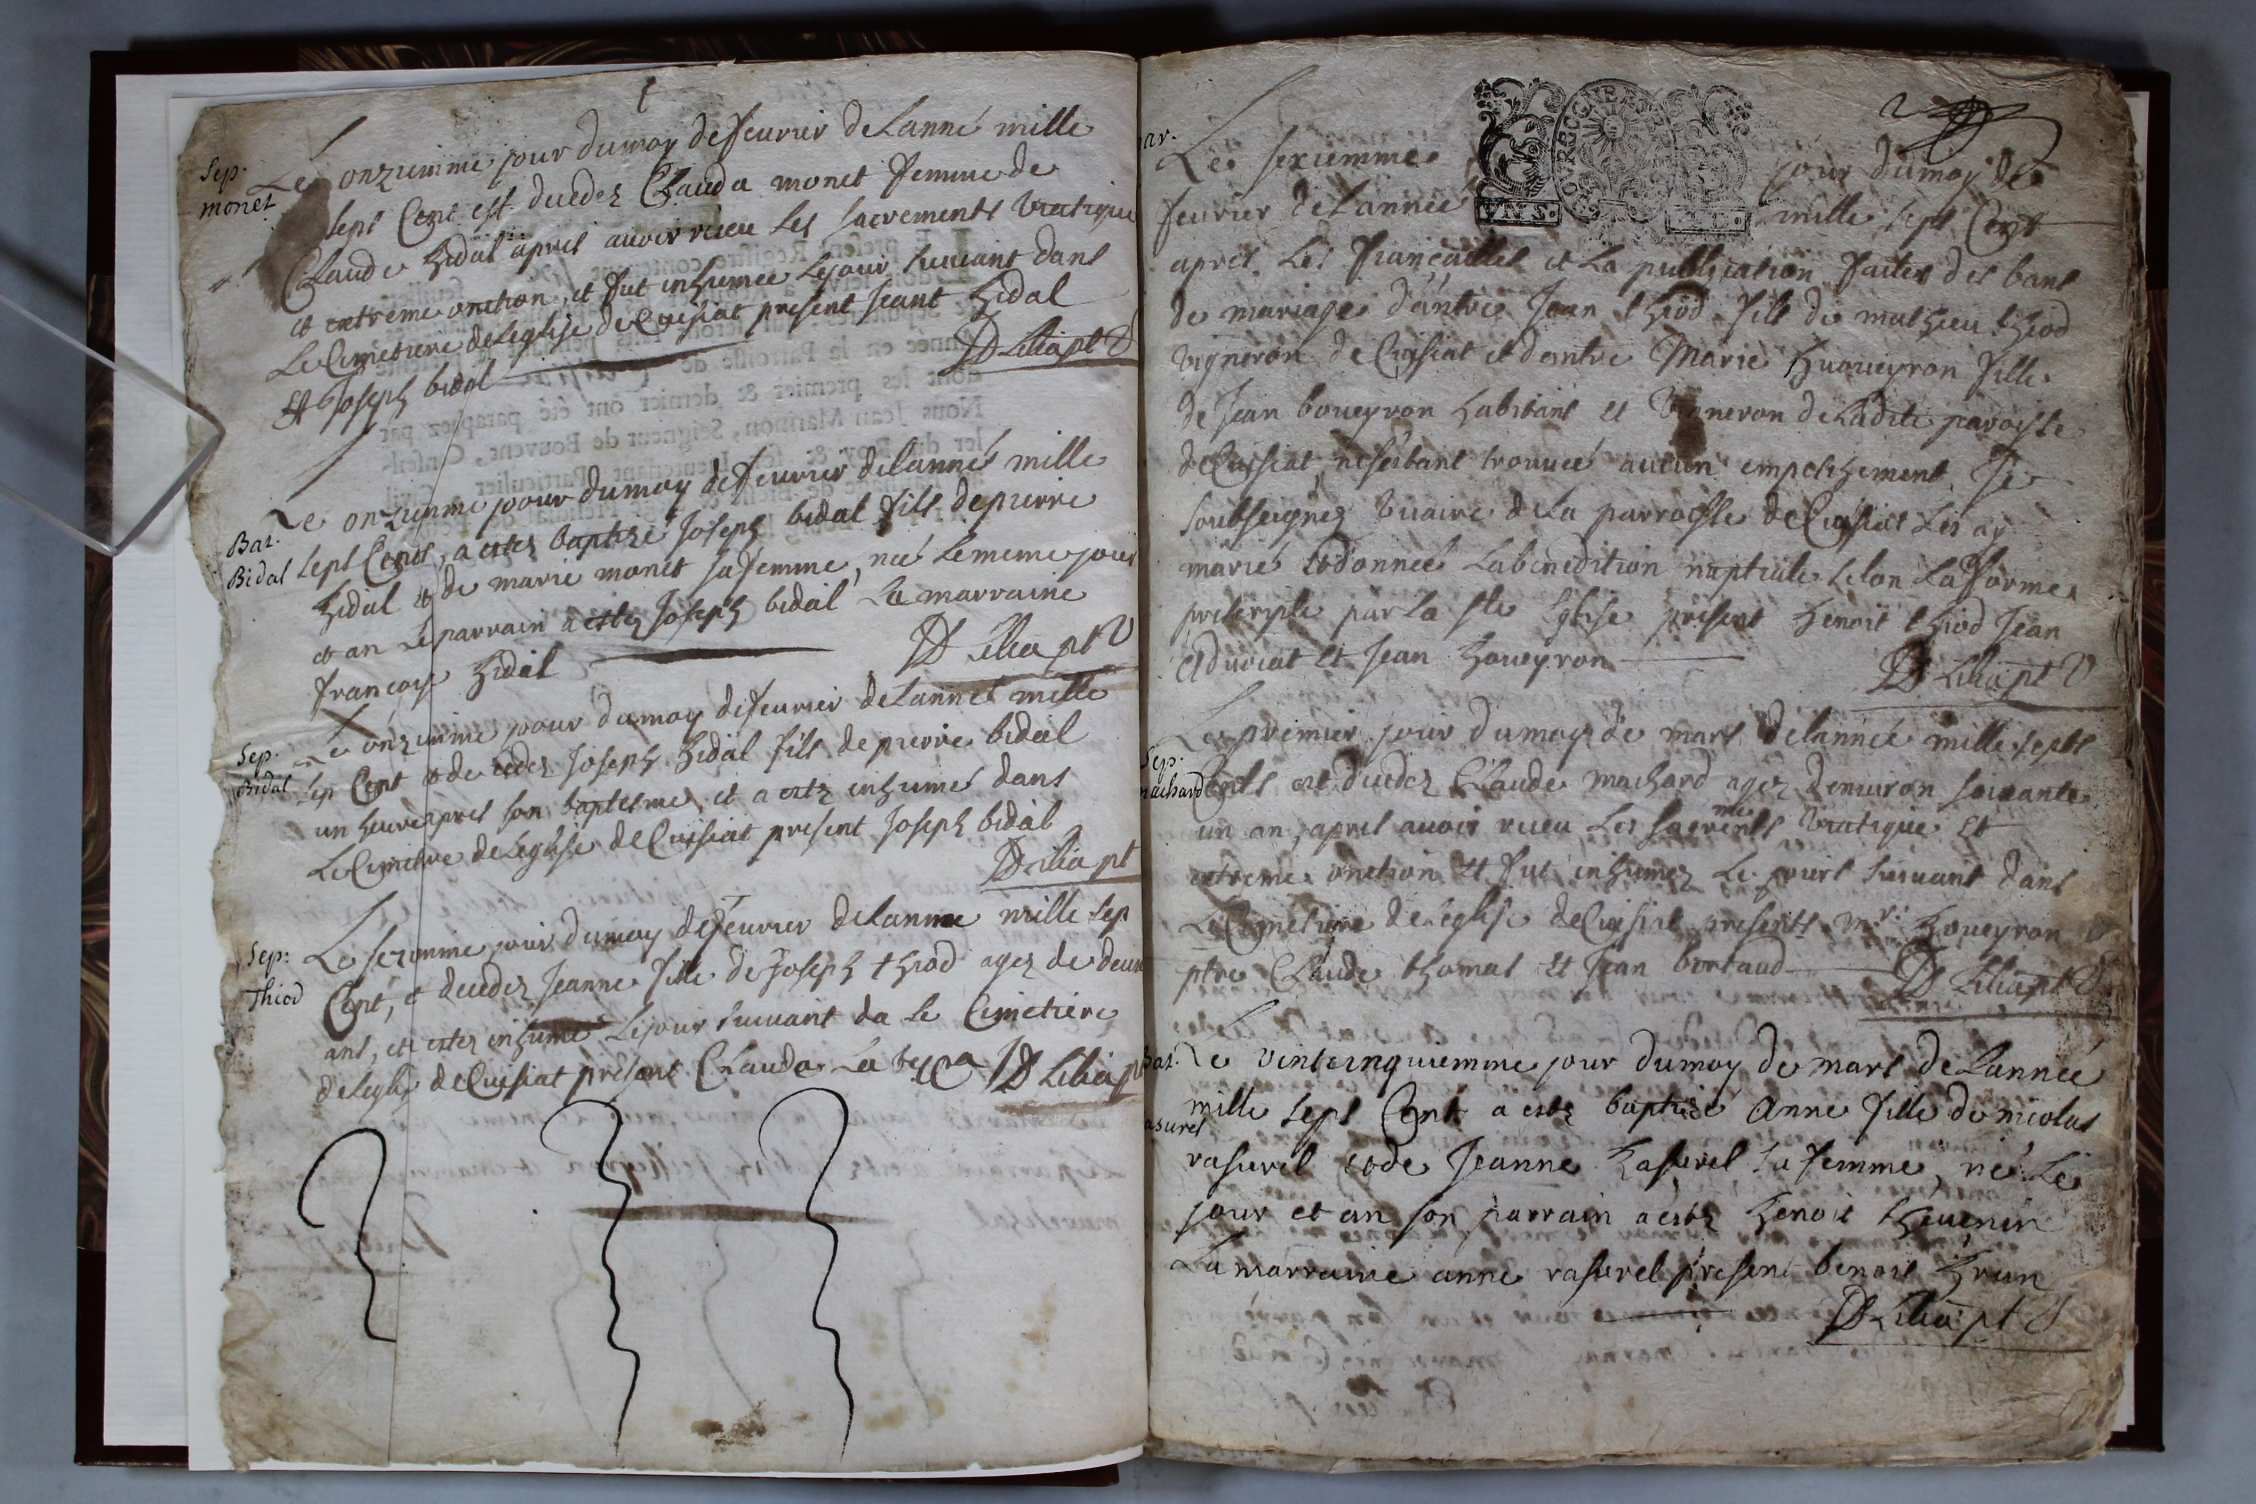 Sep.
monet
Le onziemme jour du moy de feurier de Lanné mille
sept Cent est decedez Clauda monet femme de
Claude bidal apres auoir receu les sacrements Viatique
et extreme onction, et fut inhumee le jour suiuant dans
Le Cimetiere de leglise de Cuisiat present Jeant bidal
Et Joseph bidal
D Lilia pt V
Bat.
Bidal
Le onziemme jour du moy de feurier de lanneé mille
sept Cent, a estez baptizé Joseph bidal fils de pierre
bidal et de marie monet sa femme, neé le meme jour
et an Le parrain a estez Joseph bidal La marraine
françoyse bidal
D Lilia pt V
Sep.
Bidal
Le onziemme jour du moy de feurier de Lanneé mille
sep Cent et decedez Joseph bidal fils de pierre bidal
un heure apres son baptesme, et a estz inhumé dans
Le Cimitire de Leglise de Cuisiat present Joseph bidal
D Lilia pt
Sep:
Thiod
Le sezemme jour du moy de feurier de Lannee mille sep
Cent, et decedez Jeanne fille de Joseph thiod agez de deux
ans, et estez inhumé le jour suiuant da le Cimetiere
de leglis de Cuisiat présent Clauda La
D Lilia p
2
mar.
Le seziemme jour du moy de
feurier de Lanneé mille sept Cent
apres Les fiançailles et La publication faites des bans
de mariage dantre Jean thiod fils de mathieu thiod
Vigneron de Cuisiat et dantre Marie boueyron fille
de Jean boueyron habitant et Vigneron de Ladite paroisse
de Cuisiat, ne sestant trouueé aucun empechement Je
soubseignez Vicaire de La parroisse de Cuisiat Les ay
marié et donneé La benedition nuptiale selon La forme
prescripte par La ste Eglise présent benoit thiod Jean
Aduriat Et Jean boueyron
D Lilia pt V
Sep.
machard
Le premier jour du moy de mars de lanneé mille sept
Cents est decedez Claude machard agez denuiron soixante
un an, apres auoir receu Les sacrements Viatique Et
extreme onction Et fut inhumez Le jours suiuant dans
Le Cimetiere de leglise de Cuisiat presents mr. boueyron
ptre Claude thomas Et Jean bortaud
D Lilia pt V
Bat.
rasurel
Le vintcinquiemme jour du moy de mars de Lanneé
mille sept Cent a estz baptizé Anne fille de nicolas
rasurel et de Jeanne rasurel sa femme, né Le
jour et an son parrain a estz benoit theuenin
La marraine anne rasurel présent benoit brun
D Lilia pt V